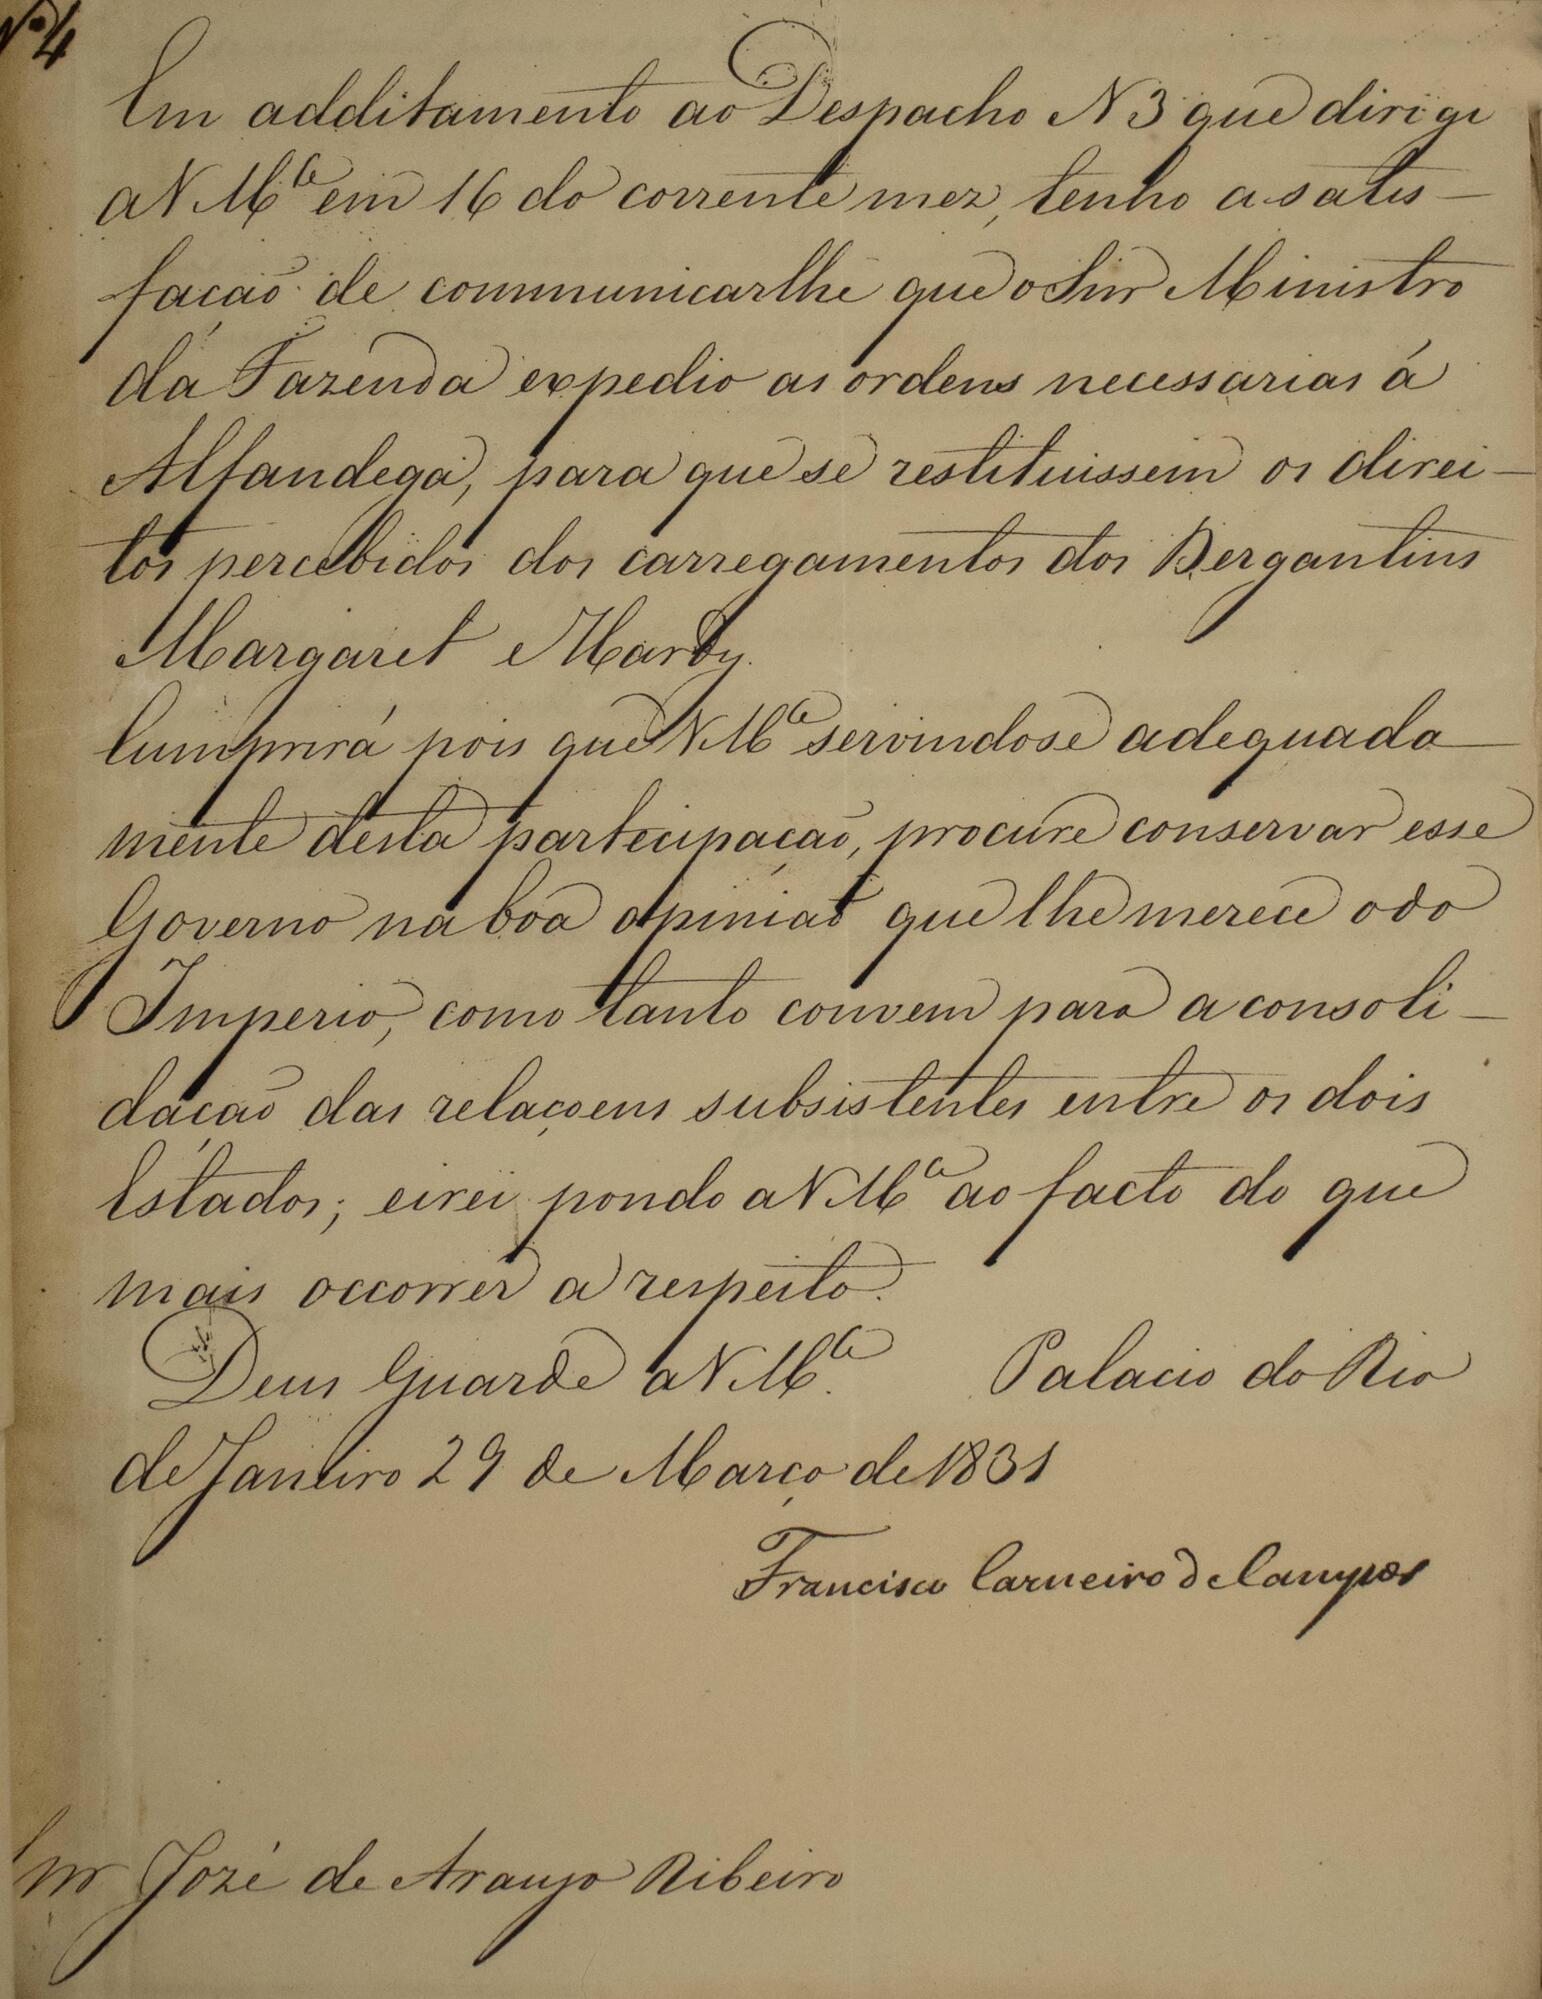 Nº 4
Em additamento ao Despacho N 3 que dirigi
a V Mce em 16 do corrente mez, tenho a satis-
facaõ de communicarlhe que o Snr Ministro
da Fazenda expedio as ordens necessarias á
Alfandega, para que se restituissem os direi-
tos percebidos dos carregamentos dos Bergantins
Margaret e Mardy.
Cumprirá pois que V Mce servindose adequada
mente desta participação, procure conservar esse
Governo na boa opiniaõ que lhe merece o do
Imperio, como tanto convem para a consoli-
dação das relaçoens subsistentes entre os dois
Estados; e irei pondo a V Mce ao facto do que
mais occorrer a respeito.
Deus Guarde a V Mce. Palacio do Rio
de Janeiro 29 de Março de 1831
Francisco Carneiro de Campos
Snr José de Araujo Ribeiro